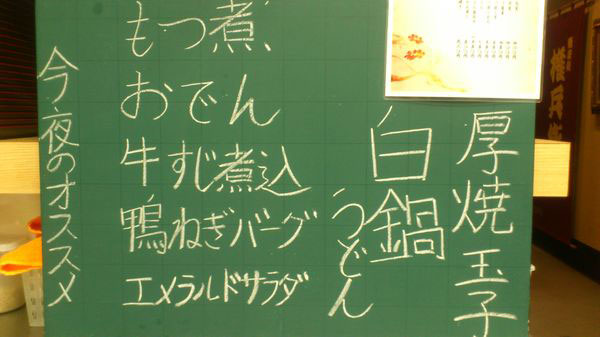 今夜のオススメ
もつ煮
おでん
牛すじ煮込
鴨ねぎバーグ
エメラルドサラダ
厚焼玉子
白鍋
うどん